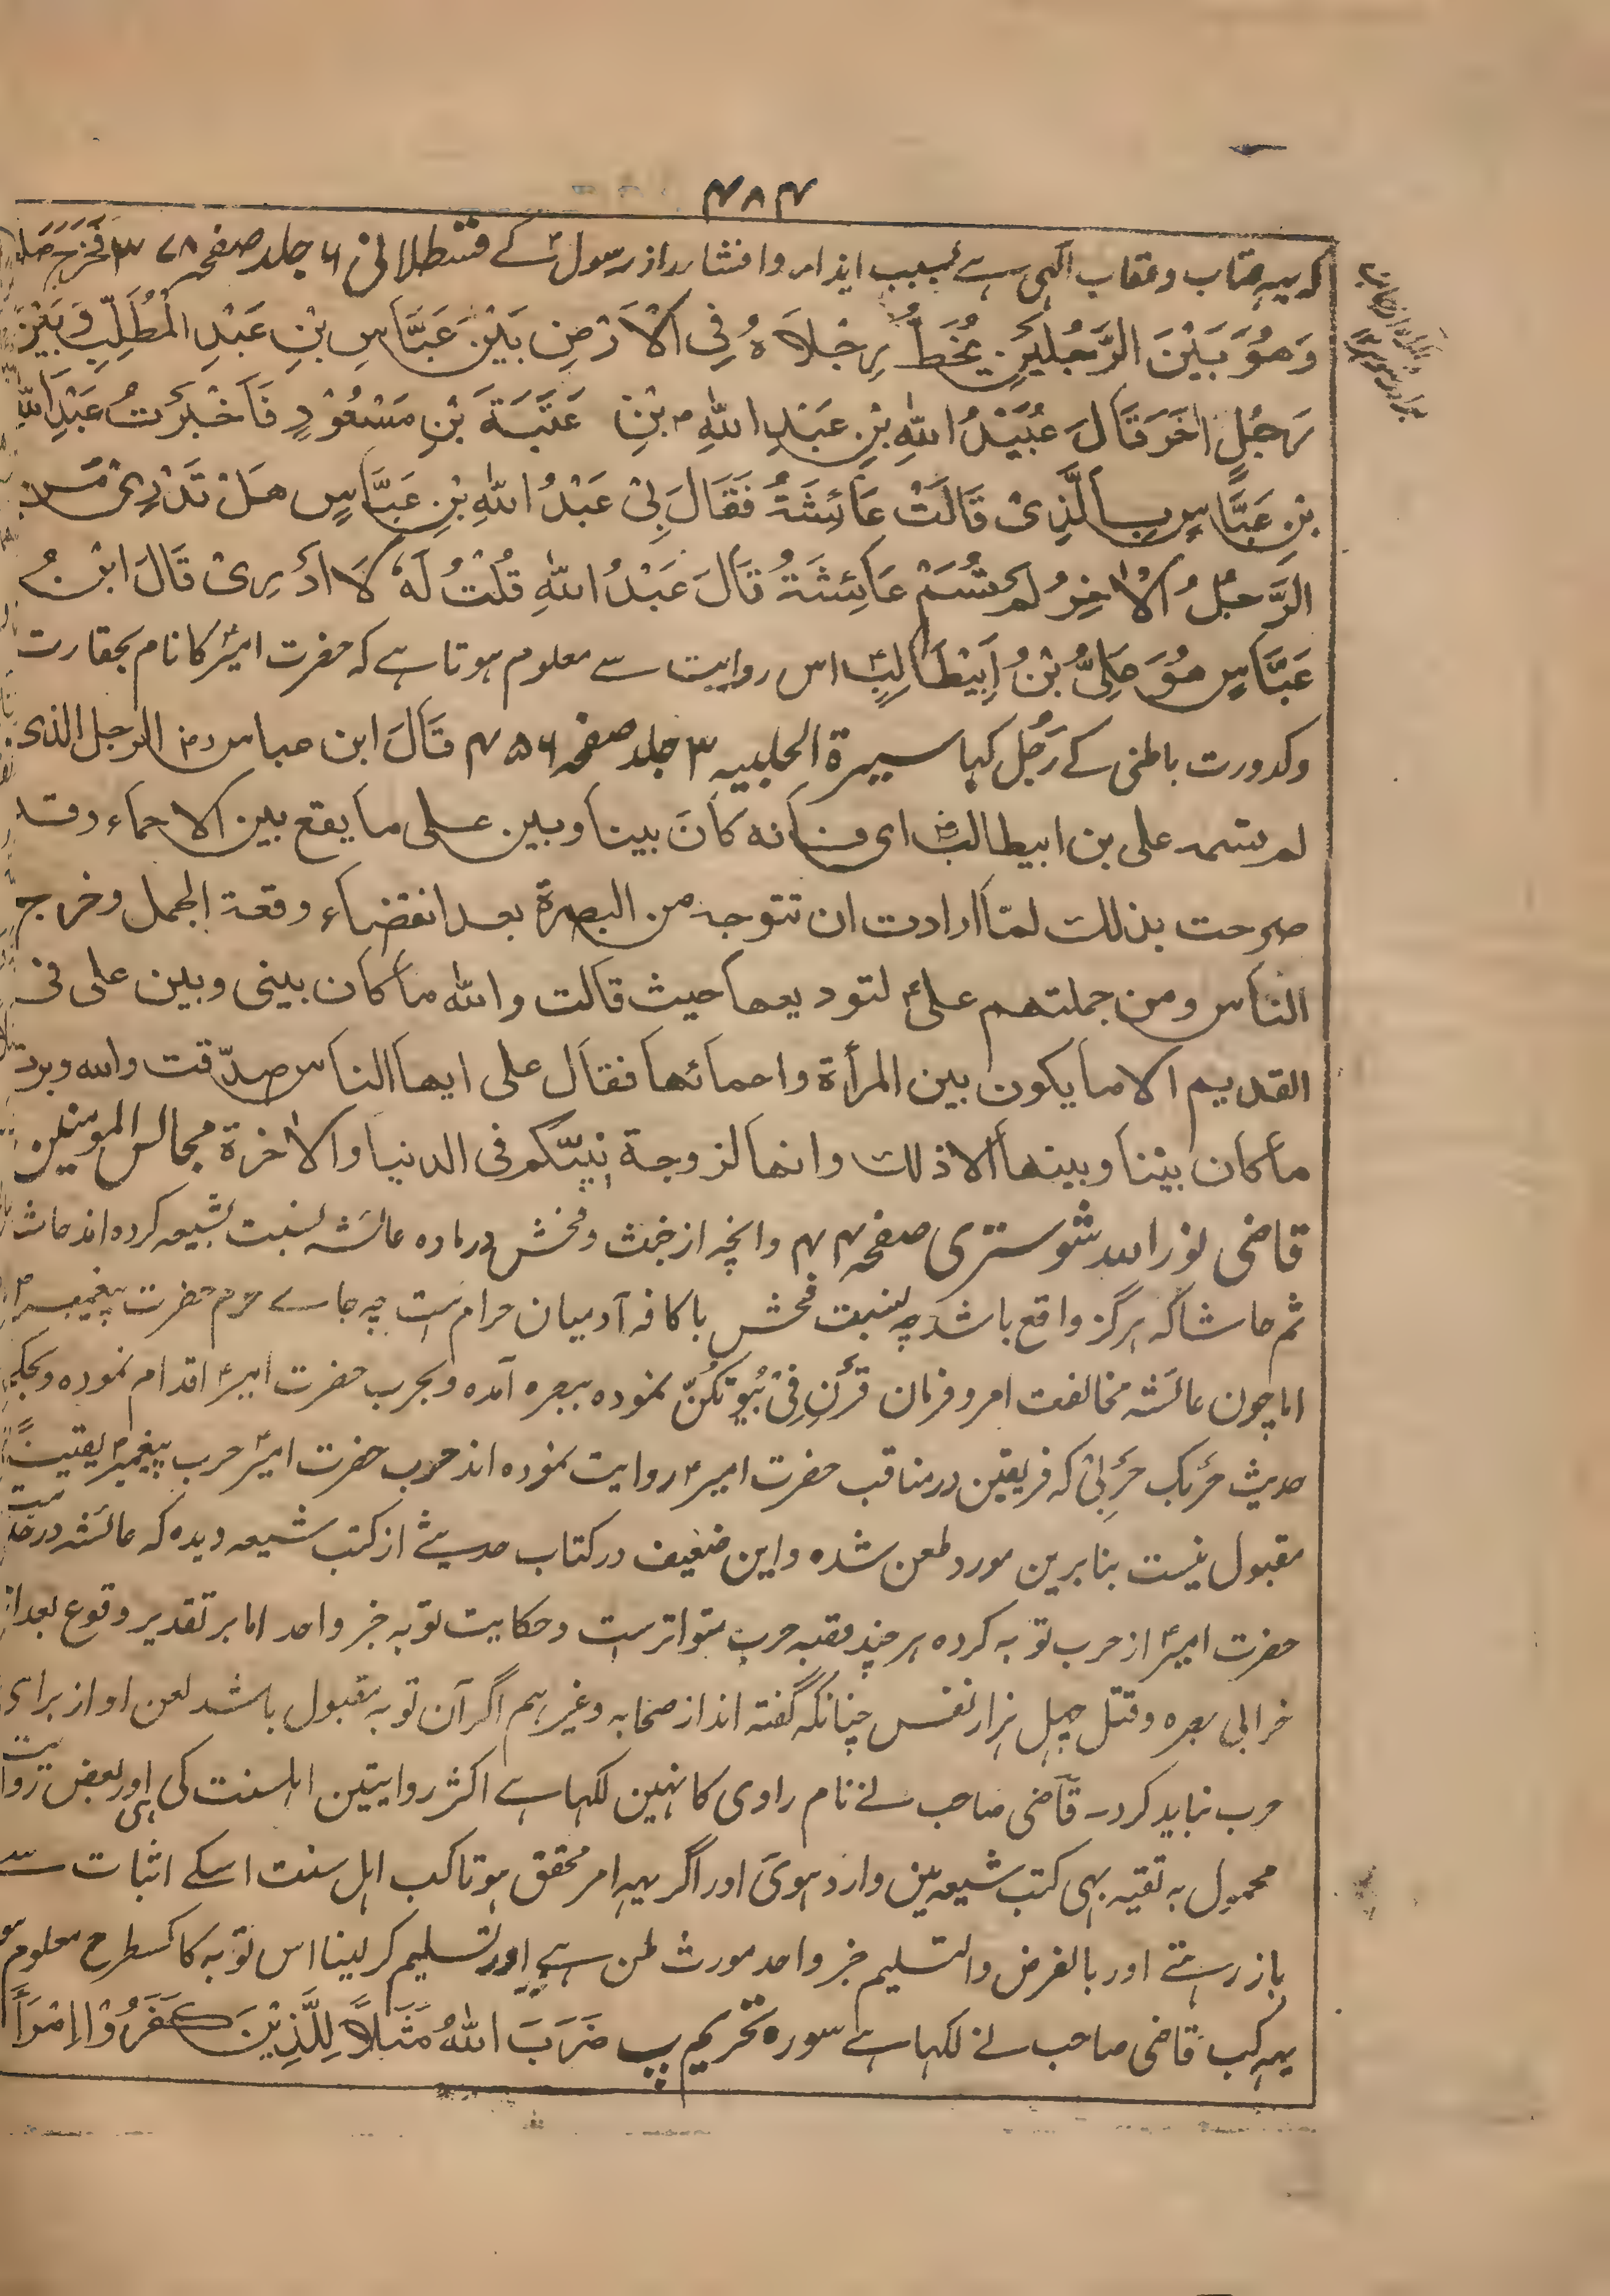 ۴۸۴
کہ یہہ عتاب و عقاب الٰہی ہے بسبب ایذاء و افشاء راز رسولؐ کے قسطلانی ۶ جلد صفحہ ۳۷۸ فَخَرَجَ
وَهُوَ بَيْنَ الرَّجُلَيْنِ يَخُطُّ رِجْلَاهُ فِي الْاَرْضِ بَيْنَ عَبَّاسِ بْنِ عَبْدِ الْمُطَّلِبِ وَبَيْنَ
رَجُلٍ اٰخَرَ قَالَ عُبَيْدُ اللّٰهِ بْنِ عَبْدِ اللّٰهِ بْنِ عَتَبَةَ بْنِ مَسْعُوْدٍ فَاَخْبَرْتُ عَبْدَ اللّٰهِ
بْنِ عَبَّاسٍ بِالَّذِيْ قَالَتْ عَائِشَةُ فَقَالَ لِيْ عَبْدُ اللّٰهِ بْنِ عَبَّاسٍ هَلْ تَدْرِيْ مَنِ
الرَّجُلُ الْاٰخِرُ لَمْ تُسَمِّ عَائِشَةُ قَالَ عَبْدُ اللّٰهِ قُلْتُ لَهٗ لَا اَدْرِيْ قَالَ ابْنُ
عَبَّاسٍ هُوَ عَلِيُّ بْنُ اَبِيْطَالِبٍؑ اس روایت سے معلوم ہوتا ہے کہ حضرت امیرؑ کا نام بحقارت
وکدورت باطنی کے رَجُل کہا سیرۃ الحلبیہ ۳ جلد صفحہ ۴۵۶ قَالَ ابن عباس رض الرجل الذی
لم تسمہ علی بن ابیطالبؓ ای فانہ کَانَ بینا وبین علی ما یقع بین الاحماء وقد
صرحت بذلک لمّا ارادت ان تتوجہ من البصرۃ بعد انقضاء وقعۃ الجمل وخرج
الناس ومن جملتهم علیؑ لتودیعها حیث قالت واللہ ما کان بینی وبین علی فی
القدیم الا ما یکون بین المرأۃ واحمائها فقال علی ایها الناس صدّقت واللہ وبرت
ما کان بیننا وبینها الا ذلک وانها لزوجۃ نبیّکم فی الدنیا والاٰخرۃ مجالس المومنین
قاضی نور اللہ شوستری صفحہ ۴۴ وانچہ از خبث وفحش درمادہ عائشہ نسبت بشیعہ کردہ اند حاشا
ثم حاشا کہ ہرگز واقع باشد چہ نسبت فحش باکافہ آدمیان حرام ست چہ جاے حرم حضرت پیغمبرؐ
اما چون عائشہ مخالفت امر و فرمان قَرْنَ فِیْ بُیُوتِکُنَّ نمودہ ببصرہ آمدہ وبحرب حضرت امیرؑ اقدام نمودہ وبحکم
حدیث حَرْبُکَ حَرْبِیْ کہ فریقین در مناقب حضرت امیرؑ روایت نمودہ اند حرب حضرت امیرؑ حرب پیغمبرؐ یقیناً
مقبول نیست بنا برین مورد طعن شدہ واین ضعیف در کتاب حدیثے از کتب شیعہ دیدہ کہ عائشہ در خدمت
حضرت امیرؑ از حرب توبہ کردہ ہر چند قصہ حرب متواترست وحکایت توبہ خبر واحد اما بر تقدیر وقوع بعد از
خرابی بصرہ وقتل چہل ہزار نفس چنانکہ گفتہ اند از صحابہ وغیرہم اگر آن توبہ مقبول باشد لعن او از برای
حرب نباید کرد۔ قاضی صاحب نے نام راوی کا نہین لکہا ہے اکثر روایتین اہلسنت کی ہی اور بعض روایت
محمول بہ تقیہ بہی کتب شیعہ مین وارد ہوئی اور اگر یہہ امر محقق ہوتا کب اہل سنت اسکے اثبات سے
باز رہتے اور بالفرض والتسلیم خبر واحد مورث ظن ہے اور تسلیم کر لینا اس توبہ کا کسطرح معلوم ہو
یہہ کب قاضی صاحب نے لکہا ہے سورہ تحریم پ ضَرَبَ اللّٰهُ مَثَلًا لِّلَّذِيْنَ كَفَرُوْا امْرَأَ